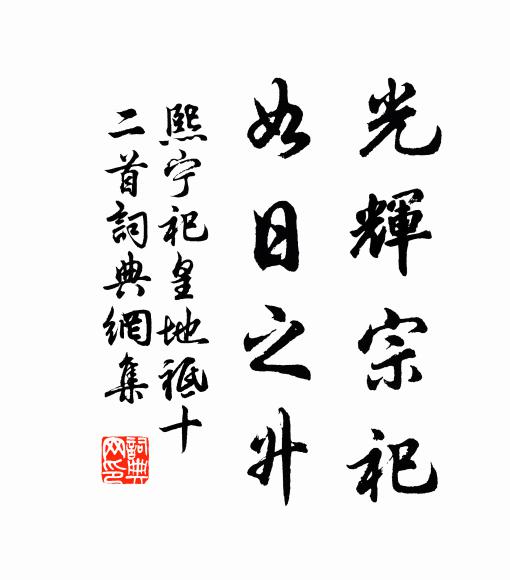 光輝宗祀
如日之升
熙宁祀皇地祗十
二首詞典網集
詞典
网印